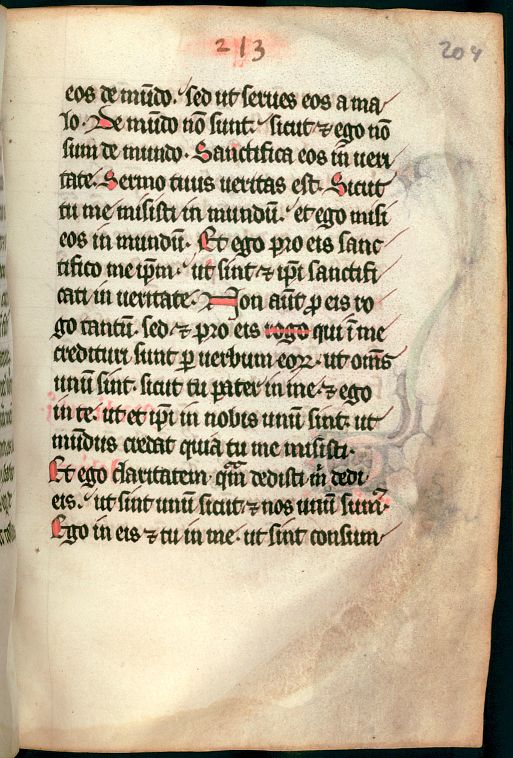 213
204
eos de mūdo. sed ut serues eos a ma
lo. De mūdo nō sunt. sicut ⁊ ego nō
sum de mundo. Sanctifica eos in ueri
tate. Sermo tuus ueritas est. Sicut
tu me misisti in mundū. et ego misi
eos in mundū. Et ego pro eis sanc
tifico me ip̄m. ut sint ⁊ ip̄i sanctifi
cati in ueritate. Non aūt p eis ro
go tantū. sed ⁊ pro eis rogo qui ī me
credituri sunt ꝑ uerbum eoꝝ. ut om̄s
unū sint. sicut tu pater in me. ⁊ ego
in te. ut et ip̄i in nobis unū sint. ut
mūdus credat quia tu me misisti.
Et ego claritatem qm̄ dedisti m̄ dedi
eis. ut sint unū sicut ⁊ nos unū sum᷒.
Ego in eis ⁊ tu in me. ut sint consum